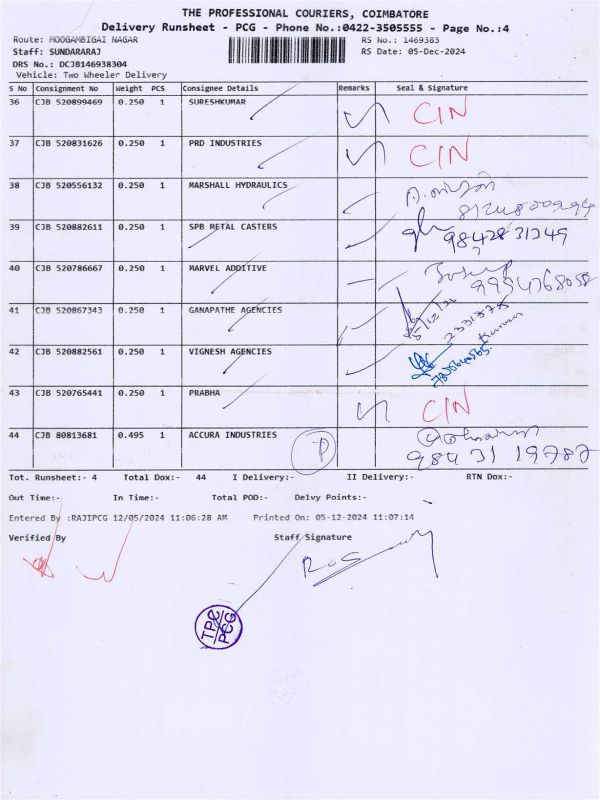 THE PROFESSIONAL COURIERS, COIMBATORE
Delivery Runsheet - PCG - Phone No.:0422-3505555 - Page No.:4
Route: MOOGAMBIGAI NAGAR RS No.: 1469383
Staff: SUNDARARAJ RS Date: 05-Dec-2024
DRS No.: DCJB146938304
Vehicle: Two Wheeler Delivery
S No Consignment No Weight PCS Consignee Details Remarks Seal & Signature
36 CJB 520899469 0.250 1 SURESHKUMAR CIN
37 CJB 520831626 0.250 1 PRD INDUSTRIES CIN
38 CJB 520556132 0.250 1 MARSHALL HYDRAULICS
39 CJB 520882611 0.250 1 SPB METAL CASTERS 98428 31349
40 CJB 520786667 0.250 1 MARVEL ADDITIVE 9994768058
41 CJB 520867343 0.250 1 GANAPATHE AGENCIES 5/12/24
42 CJB 520882561 0.250 1 VIGNESH AGENCIES
43 CJB 520765441 0.250 1 PRABHA CIN
44 CJB 80813681 0.495 1 ACCURA INDUSTRIES P 984 31 19787
Tot. Runsheet:- 4 Total Dox:- 44 I Delivery:- II Delivery:- RTN Dox:-
Out Time:- In Time:- Total POD:- Delvy Points:-
Entered By :RAJIPCG 12/05/2024 11:06:28 AM Printed On: 05-12-2024 11:07:14
Verified By Staff Signature
TPC
PCG